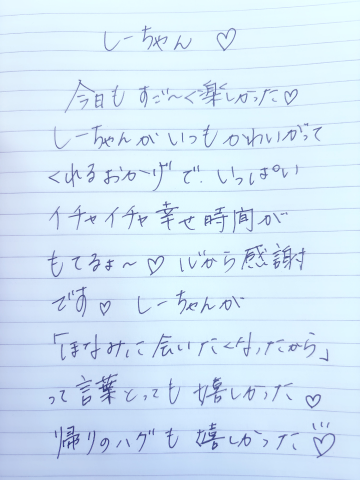 しーちゃん ♡
今日も すご〜く楽しかった♡
しーちゃんが いつも かわいがって
くれるおかげで、いっぱい
イチャイチャ 幸せ時間が
もてるよ〜♡ 心から感謝
です♡ しーちゃんが
「ほなみに会いたくなったから」
って言葉とっても 嬉しかった♡
帰りのハグも 嬉しかった♡